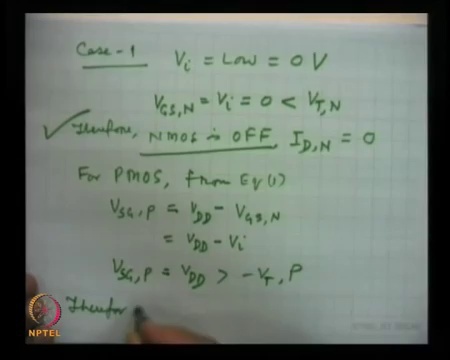 Case - 1 Vi = Low = 0 V
VGS,N = Vi = 0 < VT,N
Therefore, NMOS is OFF, ID,N = 0
For PMOS, from Eq(1)
VSG,P = VDD - VGS,N
= VDD - Vi
VSG,P = VDD > -VT,P
Therefor
NPTEL